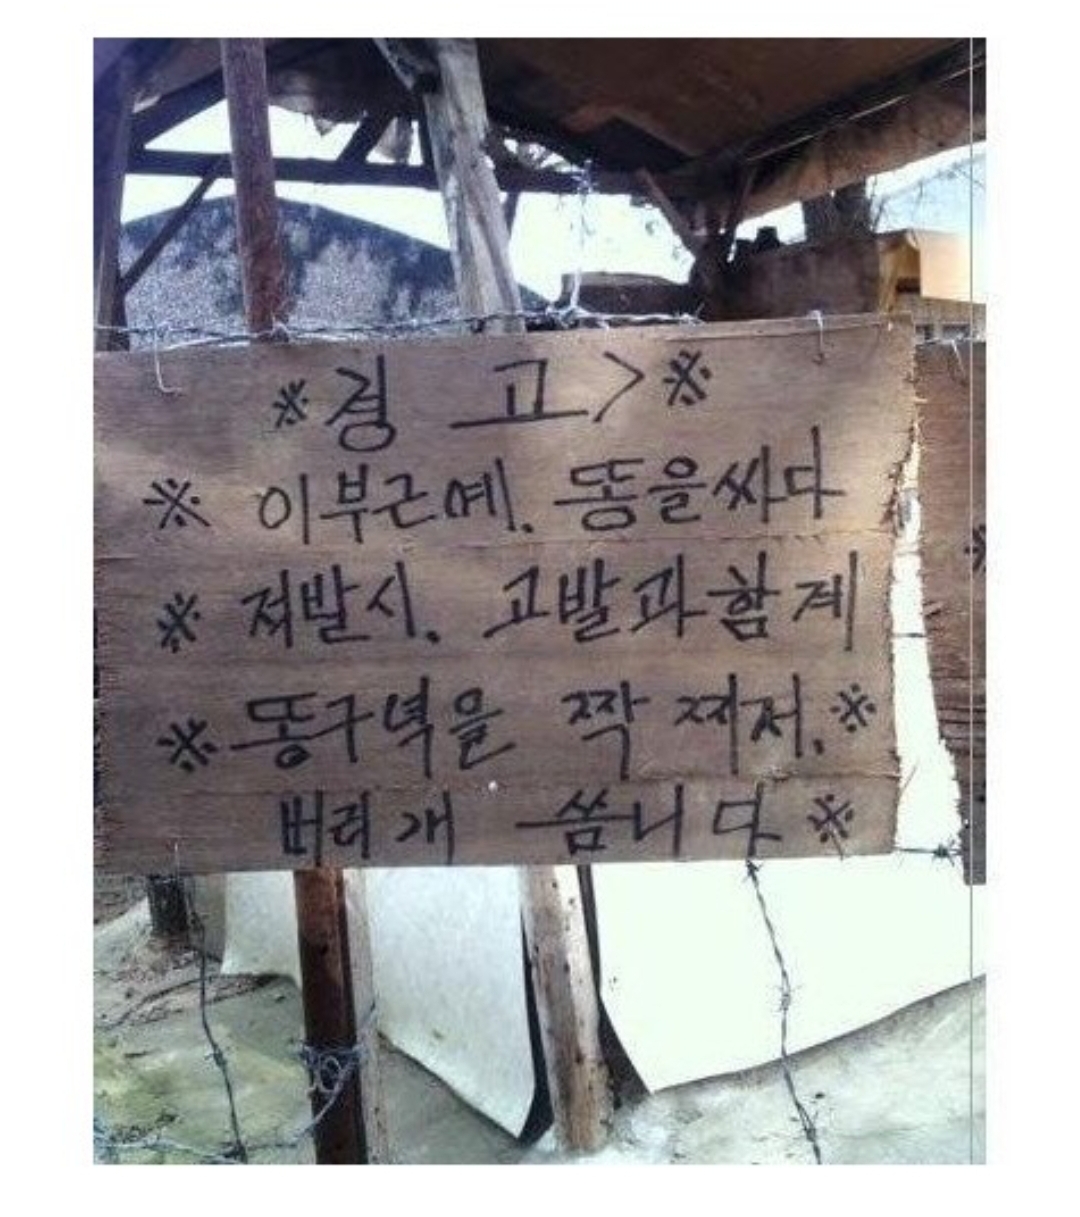 ※경 고>※
※ 이부근에. 똥을싸다
※ 져발시. 고발과함계
※똥구녁을 짝 찌저.※
버리개 씀니다※